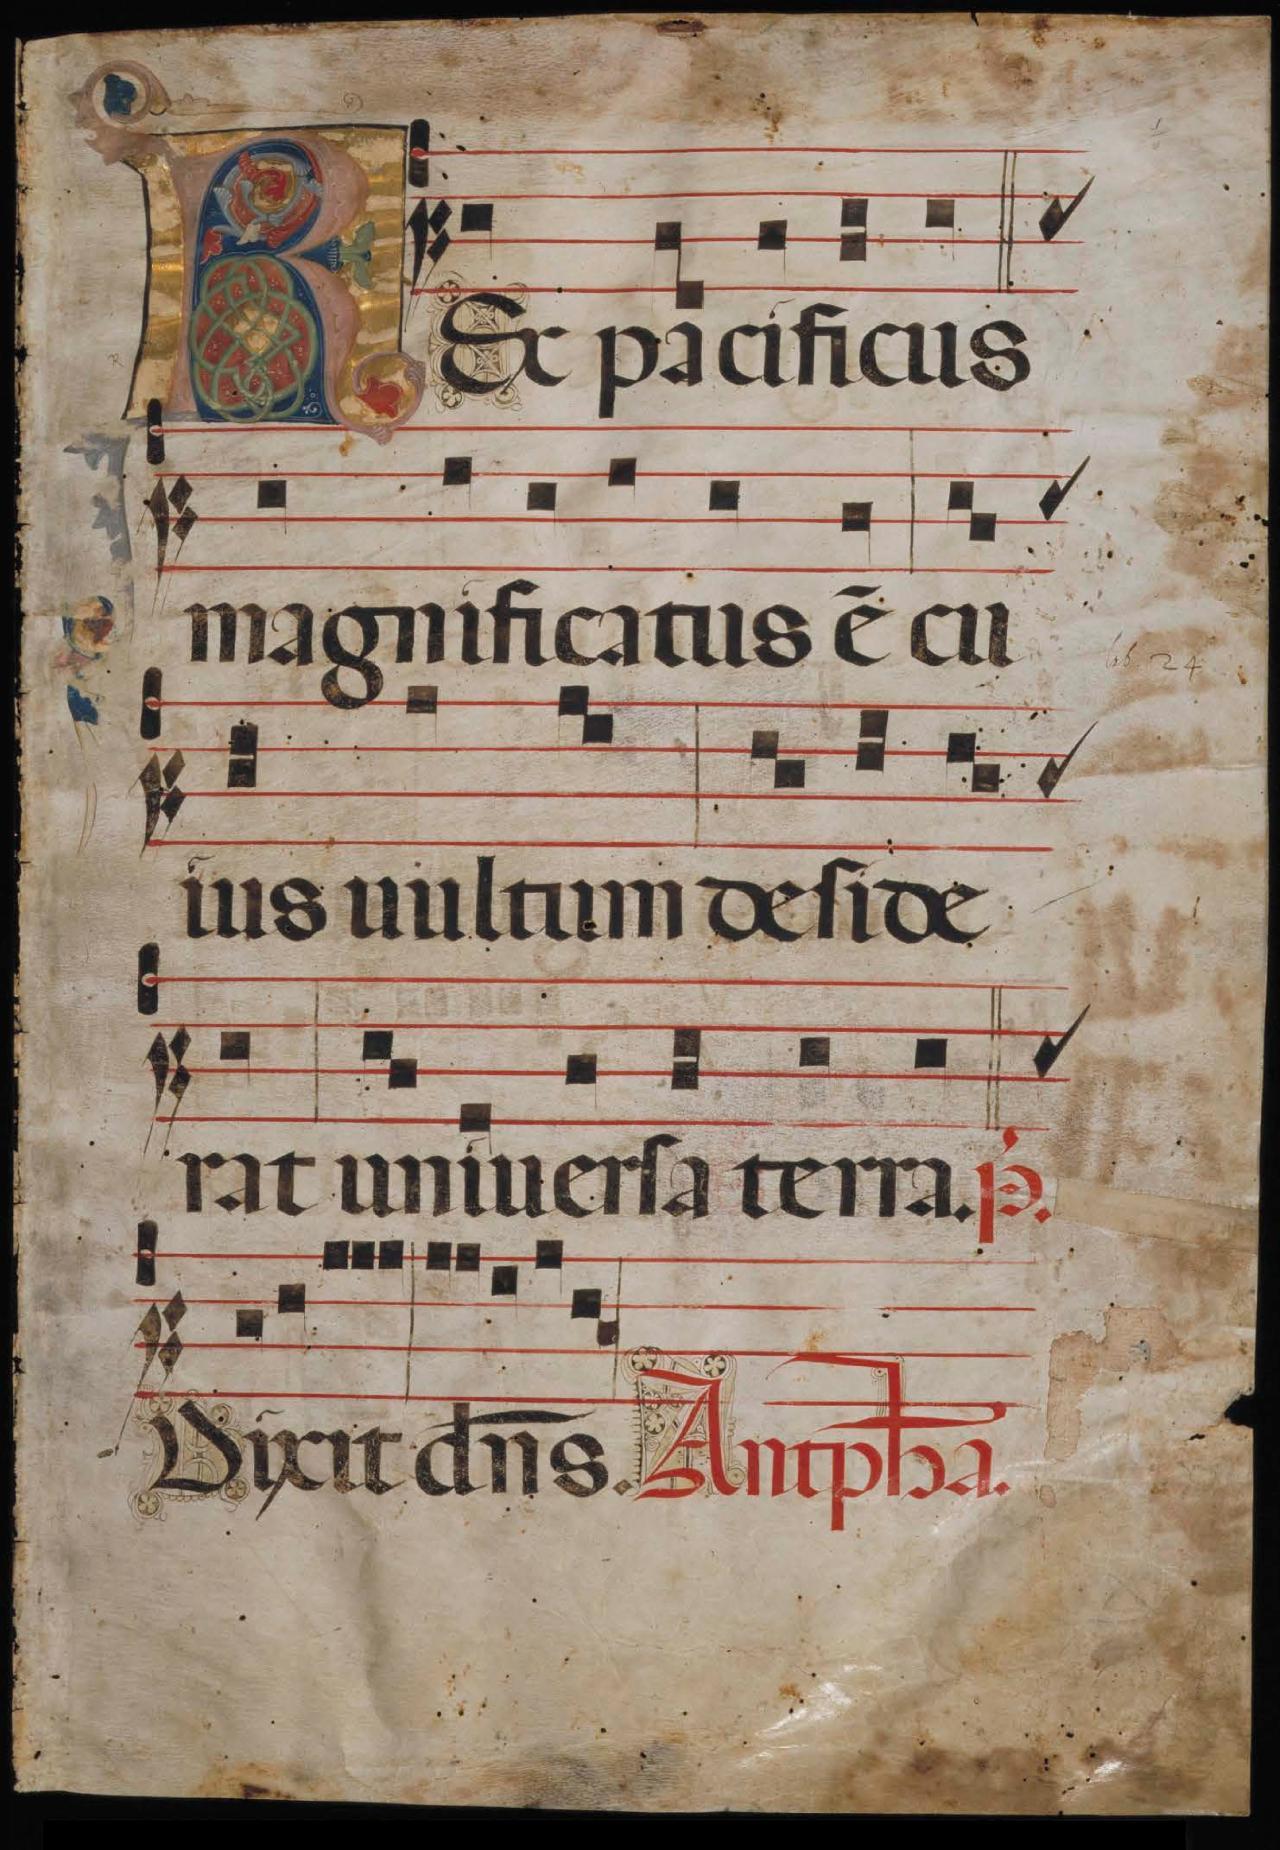 REx pacificus
magnificatus ē cu
ius uultum deside
rat uniuersa terra. p̄.
Dixit dn̄s. Antpha.